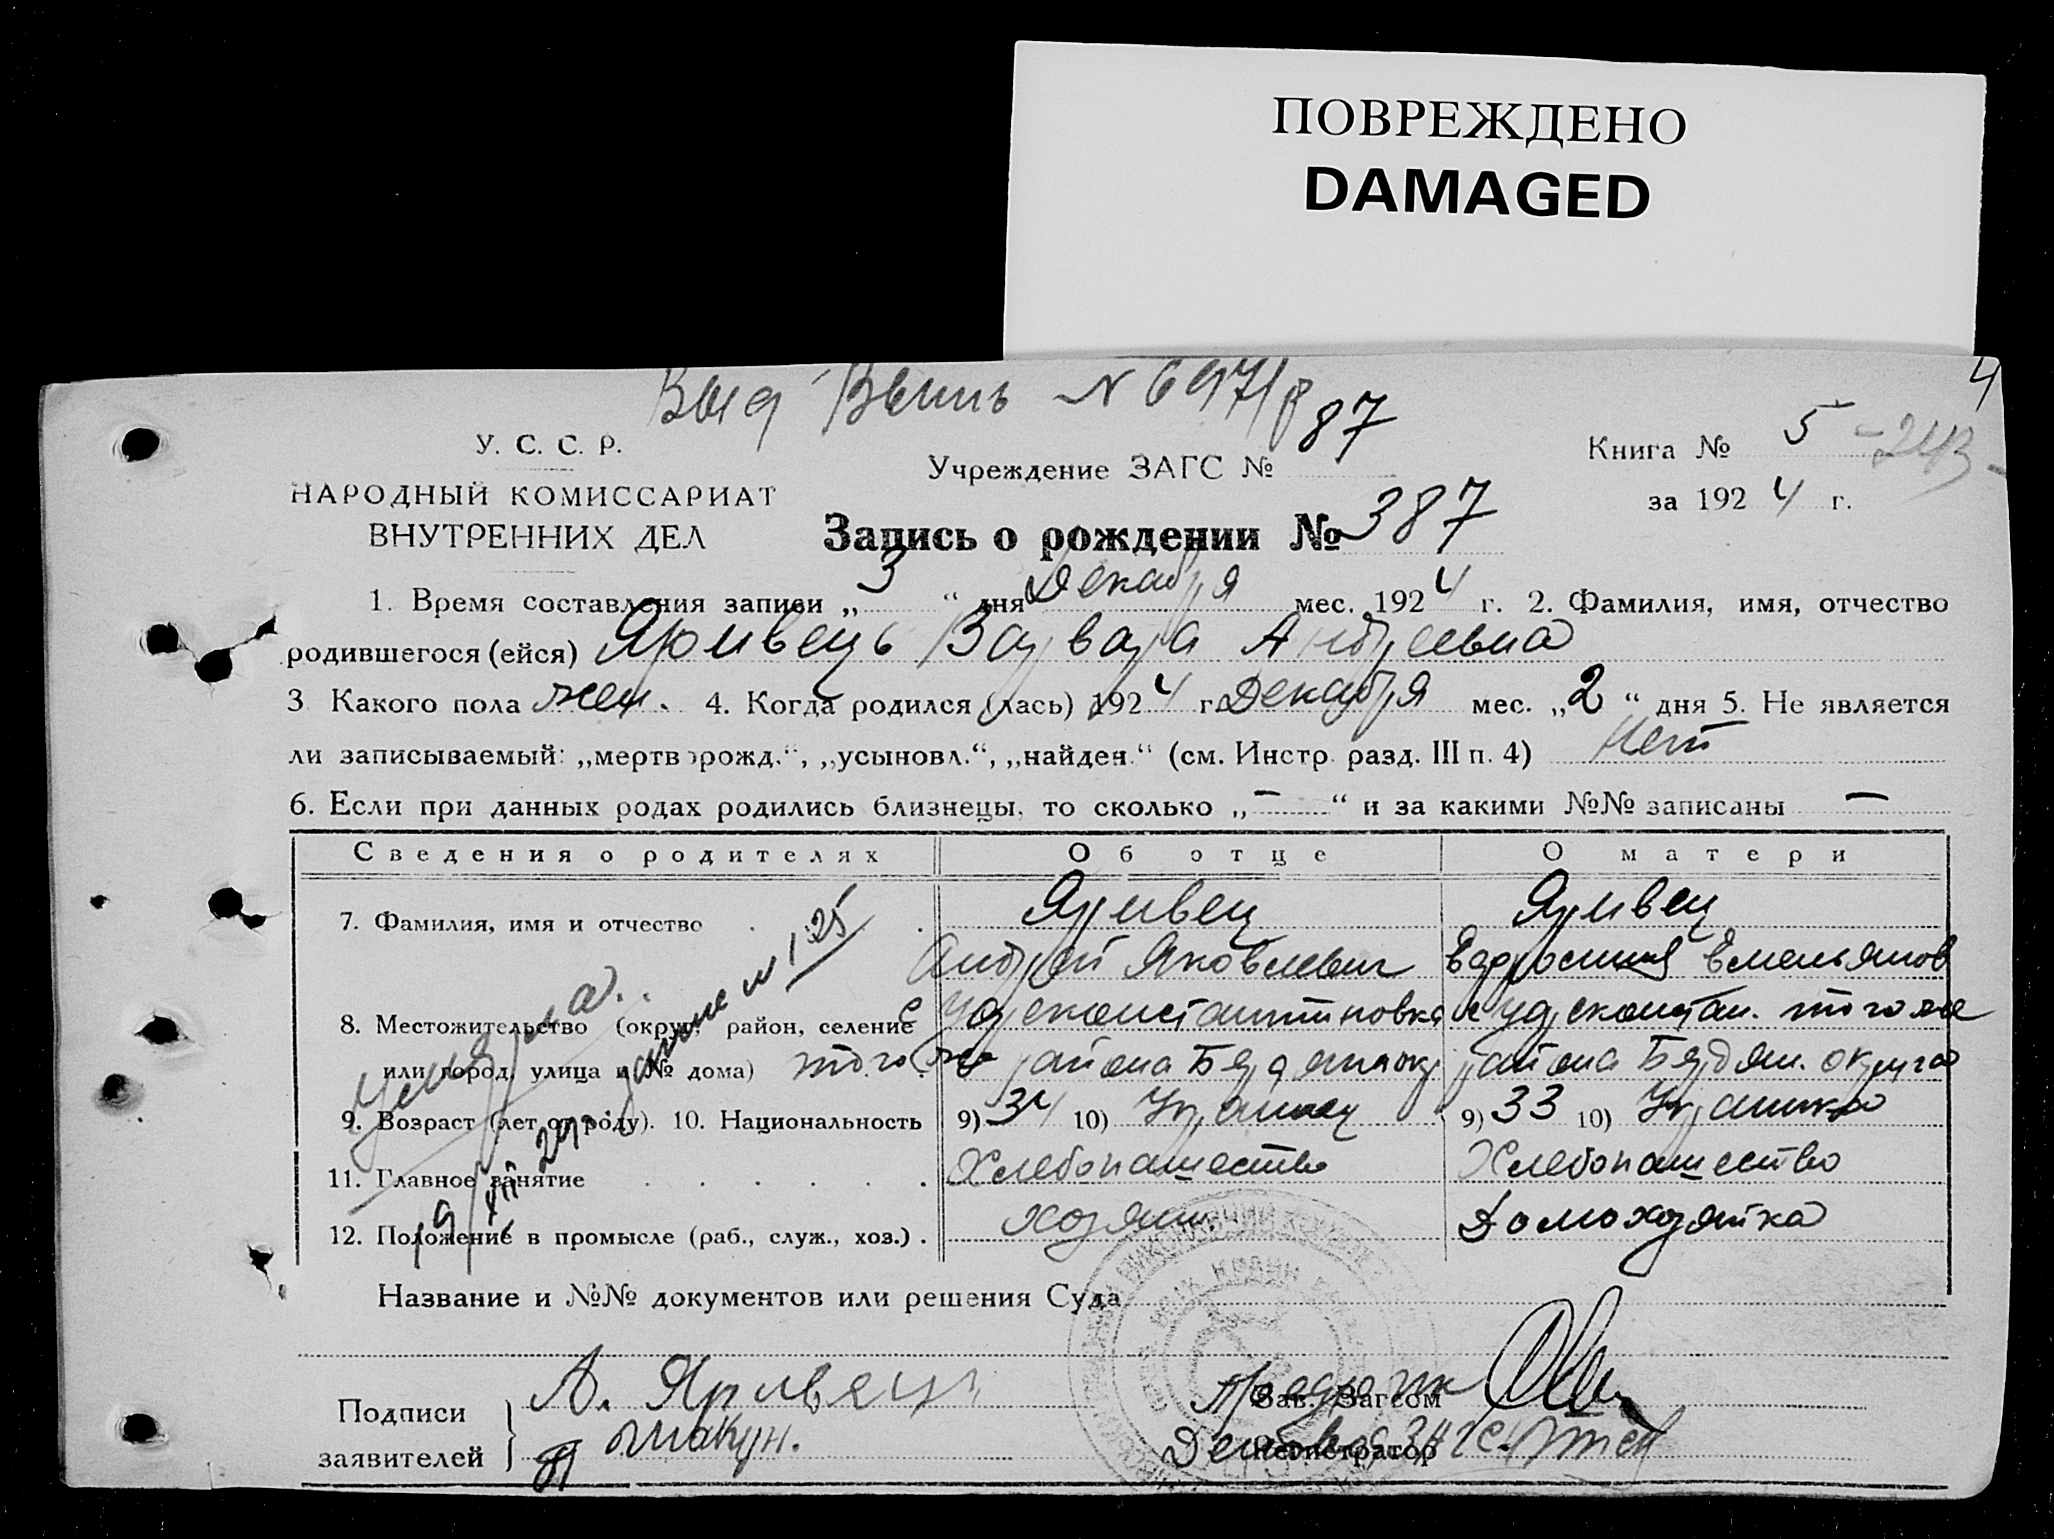 ПОВРЕЖДЕНО
DAMAGED
4
Выд Выпись N 697/р
87
У. С. С. Р.
Учреждение ЗАГС №
Книга № 5 - 243 -
НАРОДНЫЙ КОМИССАРИАТ
за 1924 г.
ВНУТРЕННИХ ДЕЛ
Запись о рождении № 387
1. Время составления записи „3“ дня Декабря мес. 1924 г. 2. Фамилия, имя, отчество
родившегося (ейся) Яривець Варвара Андреевна
3 Какого пола жен. 4. Когда родился (лась) 1924 г. Декабря мес. „2“ дня 5. Не является
ли записываемый: „мертворожд.“, „усыновл.“, „найден.“ (см. Инстр. разд. III п. 4) Нет
6. Если при данных родах родились близнецы, то сколько „—“ и за какими №№ записаны —
Сведения о родителях Об отце О матери
7. Фамилия, имя и отчество Яривец Яривец
Андрей Яковлевич Емельянов
8. Местожительство (округ, район, селение
или город, улица и № дома) того же района района Бердян. округа
9. Возраст (лет от роду). 10. Национальность 9) 34 10) Украинец 9) 33 10) Украинка
11. Главное занятие Хлебопашество Хлебопашество
12. Положение в промысле (раб., служ., хоз.) хозяин. Домохозяйка
Умерла.
Название и №№ документов или решения Суда
Подписи
заявителей
А. Яривець
Зав. Загсом
Регистратор